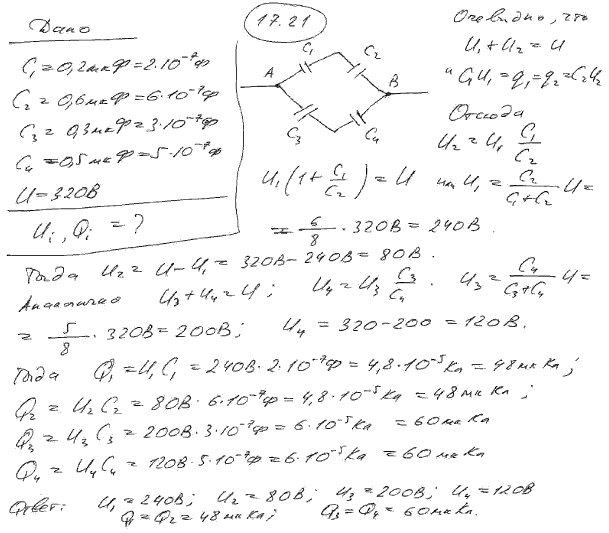 17.21
Дано
C₁=0,2мкФ=2·10⁻⁷Ф
C₂=0,6мкФ=6·10⁻⁷Ф
C₃=0,3мкФ=3·10⁻⁷Ф
C₄=0,5мкФ=5·10⁻⁷Ф
U=320В
Uᵢ, Qᵢ = ?
C₁
C₂
A
B
C₃
C₄
Очевидно, что
U₁+U₂=U
и C₁U₁=q₁=q₂=C₂U₂
Отсюда
U₂=U₁ C₁/C₂
U₁(1+C₁/C₂)=U или U₁=C₂/(C₁+C₂) U=
=6/8·320В=240В.
Тогда U₂=U−U₁=320В−240В=80В.
Аналогично U₃+U₄=U; U₄=U₃ C₃/C₄. U₃=C₄/(C₃+C₄) U=
=5/8·320В=200В; U₄=320−200=120В.
Тогда Q₁=U₁C₁=240В·2·10⁻⁷Ф=4,8·10⁻⁵Кл=48мкКл;
Q₂=U₂C₂=80В·6·10⁻⁷Ф=4,8·10⁻⁵Кл=48мкКл;
Q₃=U₃C₃=200В·3·10⁻⁷Ф=6·10⁻⁵Кл=60мкКл
Q₄=U₄C₄=120В·5·10⁻⁷Ф=6·10⁻⁵Кл=60мкКл
Ответ: U₁=240В; U₂=80В; U₃=200В; U₄=120В
Q₁=Q₂=48мкКл; Q₃=Q₄=60мкКл.